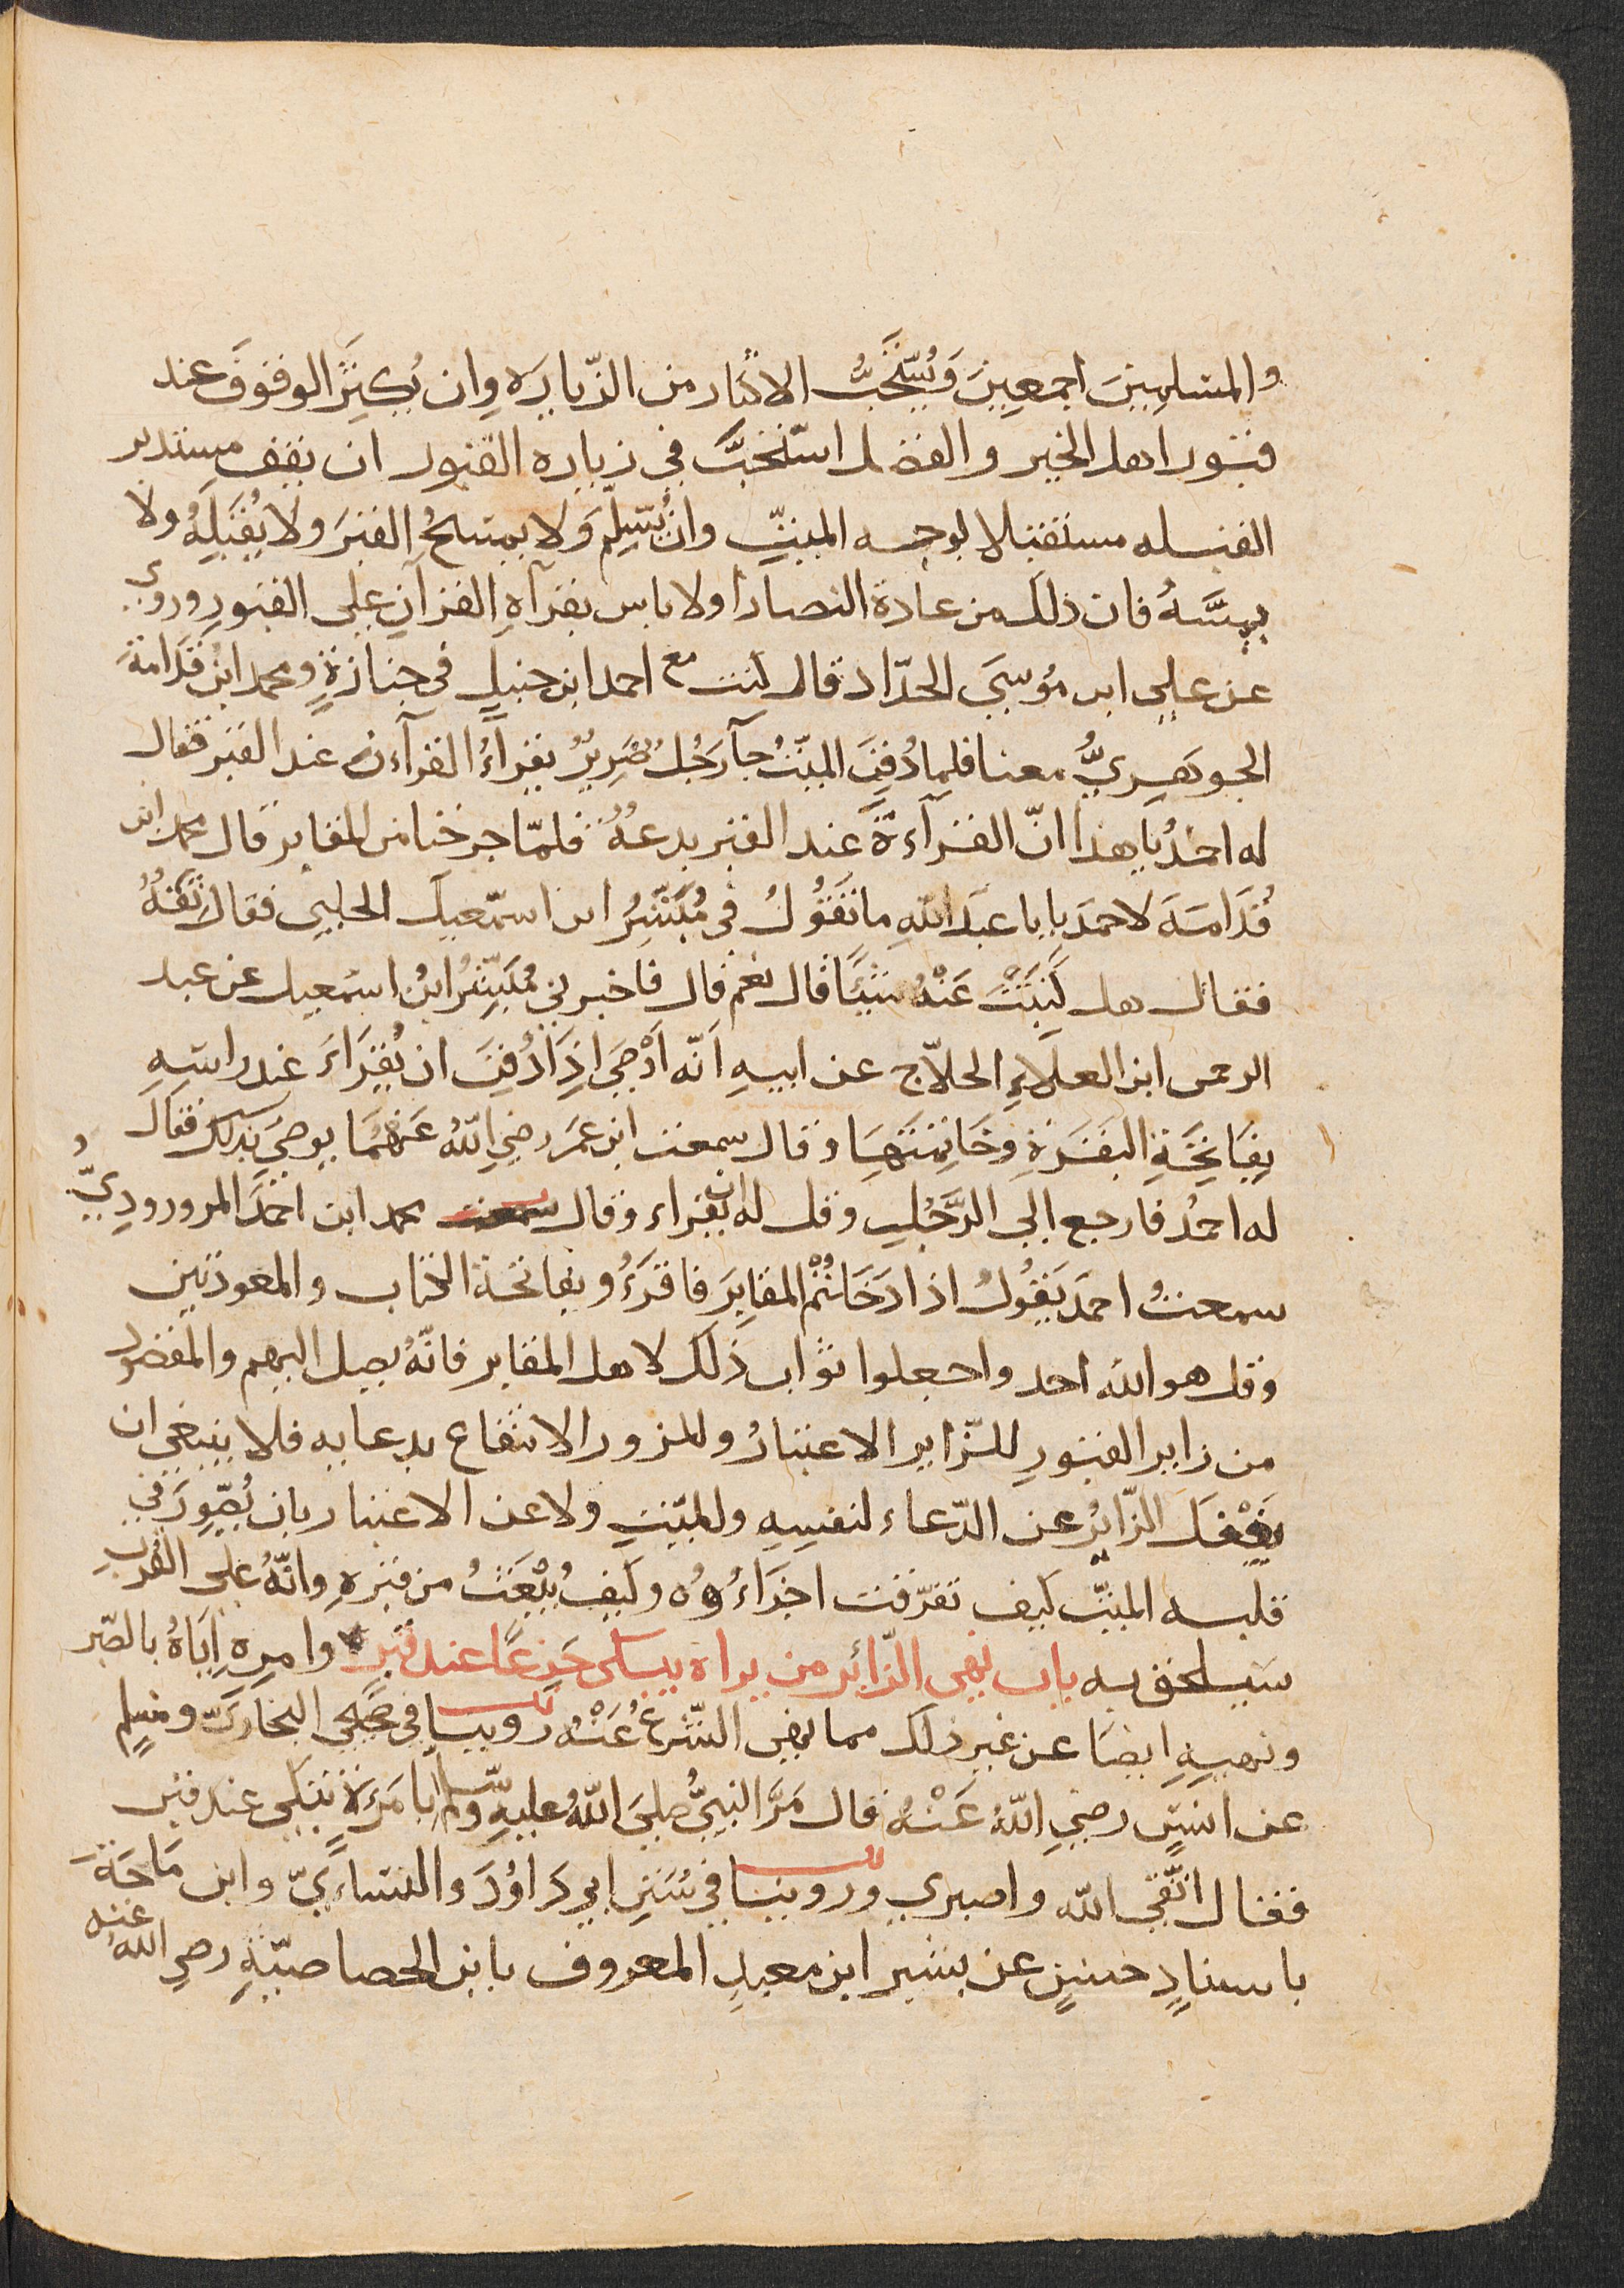 والمسلمين اجمعين وَيُسْتَحَبُّ الاكثار من الزّيارَه وان يُكثِرَ الوقوفَ عند
قبور اهل الخير والفضل استحبَّ في زياره القبور ان يقف مستدبر
القبله مستقبلا لوجه الميتِ وان يُسَلِّمَ ولا يمسحُ القبرَ ولا يُقَبِّلهُ ولا
يمسَّهُ فان ذلك من عادة النصارا ولا باس بقرآةِ القرآنِ على القبورِ وروي
عن علي ابن مُوسَي الحدّاد قال كنت مع احمد ابن حنبلٍ في جنازةٍ ومحمد ابنُ قُدَامةَ
الجوهَرِيُّ معنا فلما دُفِنَ الميّتُ جآ رَجُلٌ ضَرِيرٌ يقراءُ القرآءن عند القبر فقال
له احمدُ يا هذا انّ القرآءةَ عند القبر بدعهٌ فلمّا خرجنا من المقابر قال محمد ابن
قُدَامَهَ لاحمدَ يابا عبدَ اللهِ ما تَقُولُ في مُبَشِّرُ ابن اسمّعيلَ الحلبي فقال ثقهٌ
فقال هل كَتَبْتَ عَنْهُ شَيْئًا قال نعم قال فاخبرني مُبَشِّرُ ابنُ اسمعيل عن عبد
الرحمن ابن العلاءِ الحلاّج عن ابيهِ اَنّه اَوْصَي اِذَا دُفِنَ ان يُقرَاءَ عند راسَهِ
بِفَاتِحَةِ البقَرَةِ وخَاتِمَتِهَا وقال سمعت ابن عمَر رضي اللهُ عَنهُمَا يوصي بذلك فقال
له احمدُ فارجع الي الرَّجُلِ وقل له ان يقراء وقال سمعت محمد ابن احمَدَ المرورودِيُّ
سمعتُ احمدَ يَقُولُ اذا دَخَلتُمُ المقابِرَ فاقرَءُوا بفاتحة الكتاب والمعوذتين
وقل هو الله احد واجعلوا ثواب ذلك لاهل المقابر فانّهُ يصل اليهم والمقصود
من زاير القبورِ للزّاير الاعتبارُ وللمزور الانتفاع بدعايه فلا ينبغي ان
يَغْفلَ الزّائرُ عن الدّعاء لنفسِهِ وللميّتِ ولا عن الاعتبار بان يُصَوِرَ في
قلبه الميّت كيف تفرّقت اجزَاءُوُه وكيفُ يُبْعَثُ من قبرهِ وانّهُ على القُربِ
سيلحق به باب نهي الزّائر من يراه يبكي جَزعًا عند قبر وامرهِ اِيَاهُ بالصّبر
ونهيهِ ايضًا عن غير ذلك مما نهي الشّرعُ عَنْهُ روينا في صَحِيحي البخاريّ ومسلمٍ
عن انسٍ رضي اللهُ عَنْهُ قال مَرَّ النبيُّ صلي اللهُ عليهِ وسلم بامَرَةٍ تبكي عند قبر
فقال اتّقي الله واصبري وروينا في سُنَنِ ابي دَاوُدَ والنساءيّ وابن مَاجَةَ
باسنادٍ حسنٍ عن بشير ابن معبدِ المعروف بابن الحصاصيّةِ رضي الله عنه